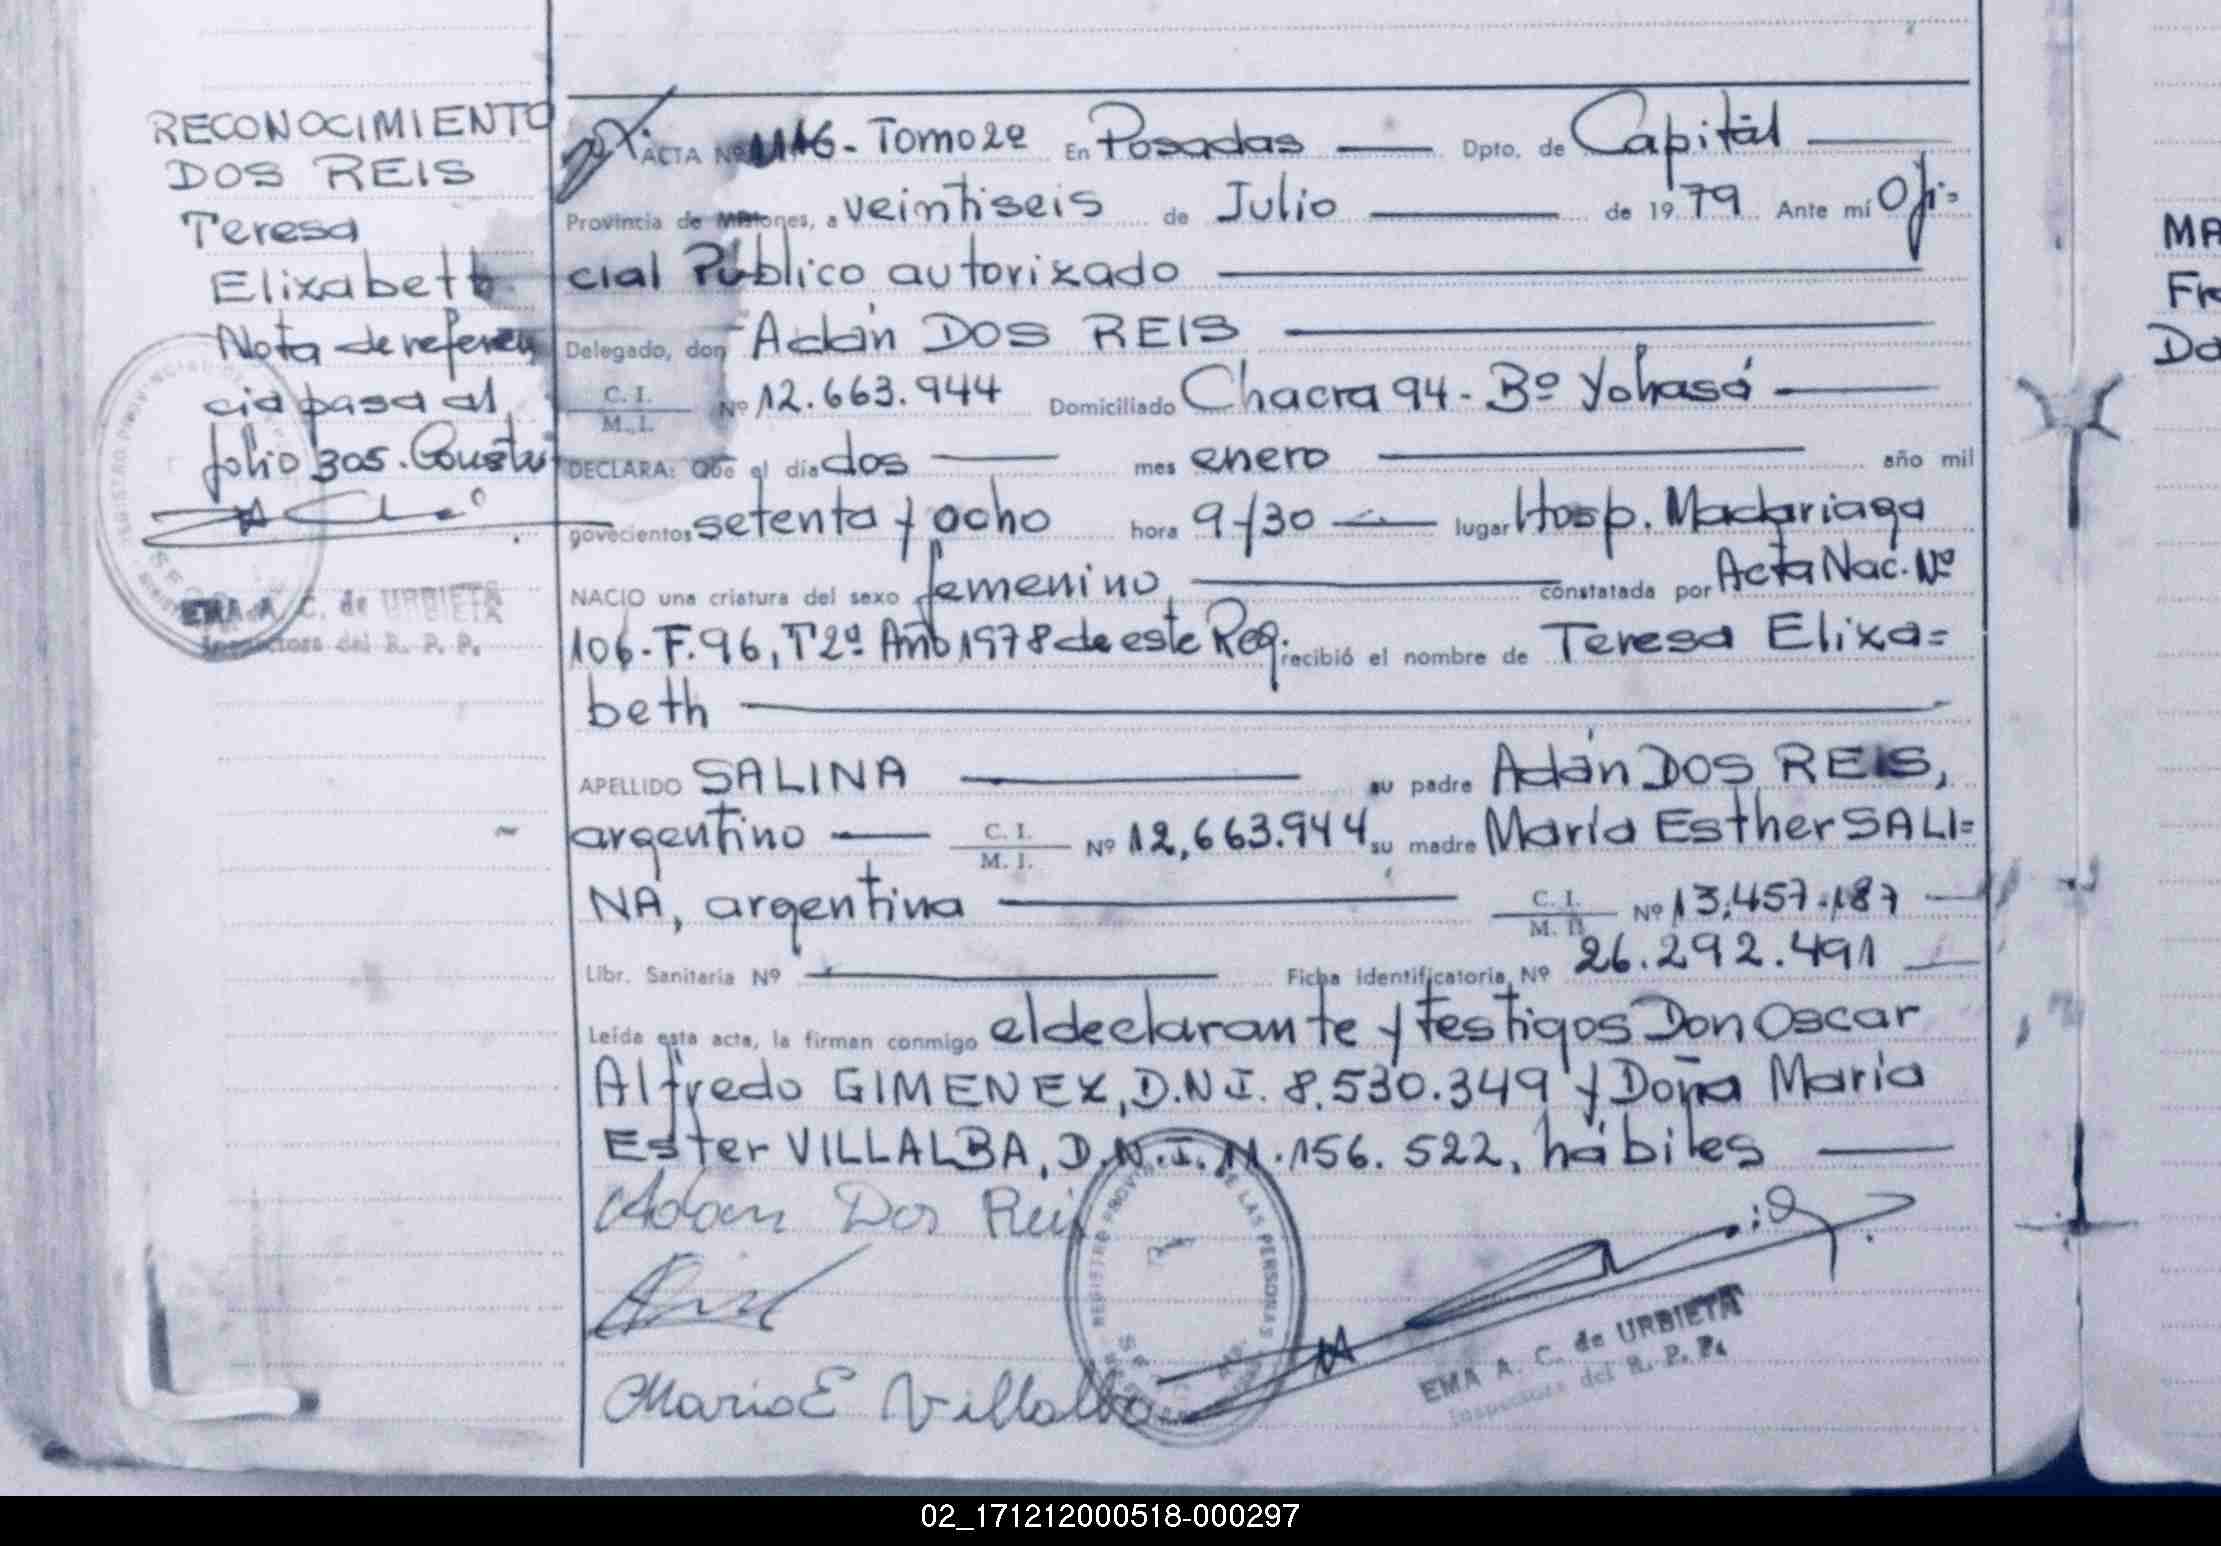 RECONOCIMIENTO
DOS REIS
Teresa
Elizabeth
Nota de referen
cia pasa al
folio 305. Conste
EMA A. C. de URBIETA
Inspectora del R. P. P.
ACTA Nº 1116- Tomo 2º En Posadas — Dpto. de Capital —
Provincia de Misiones, a veintiseis de Julio — de 1979 Ante mí Ofi=
cial Público autorizado —
Delegado, don Adán DOS REIS —
C. I.
M. I. Nº 12.663.944 Domiciliado Chacra 94- Bº Yohasá —
DECLARA: Que el día dos — mes enero — año mil
novecientos setenta y ocho hora 9/30 — lugar Hosp. Madariaga
NACIO una criatura del sexo femenino — constatada por Acta Nac. Nº
106-F.96, T2º Año 1978 de este Reg. recibió el nombre de Teresa Eliza=
beth —
APELLIDO SALINA — su padre Adán DOS REIS,
argentino — C. I.
M. I. Nº 12,663.944 su madre María Esther SALI=
NA, argentina — C. I.
M. I. Nº 13.457.187 —
Libr. Sanitaria Nº — Ficha identificatoria Nº 26.292.491 —
Leída esta acta, la firman conmigo el declarante y testigos Don Oscar
Alfredo GIMENEZ, D.N.I. 8.530.349 y Doña María
Ester VILLALBA, D.N.I. 11.156.522, hábiles —
Adan Dos Reis
REGISTRO PROVINCIAL DE LAS PERSONAS
Maria E Villalba
EMA A. C. de URBIETA
Inspectora del R. P. P.
MA
Fr
Do
02_171212000518-000297